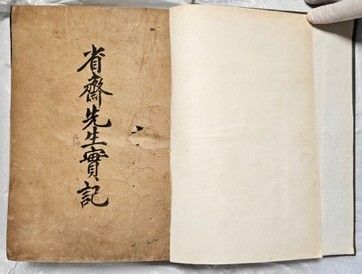 省齋先生實記